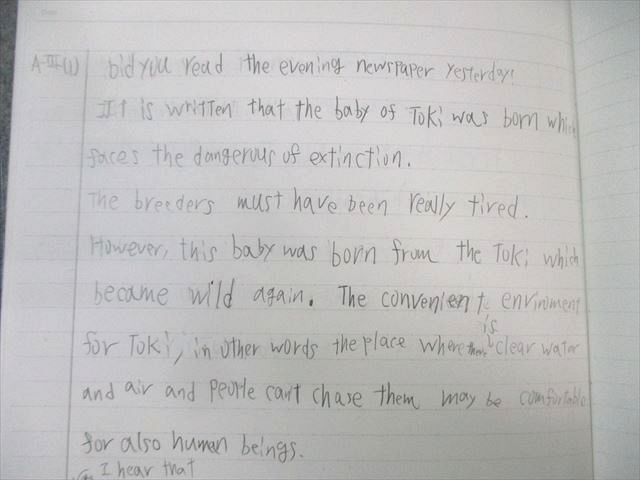 A-III-(1) Did you read the evening newspaper yesterday?
It is written that the baby of Toki was born which
faces the dangerous of extinction.
The breeders must have been really tired.
However, this baby was born from the Toki which
became wild again. The convenient enviroment
for Toki, in other words the place where there is clear water
and air and people can't chase them may be comfortable
for also human beings.
I hear that